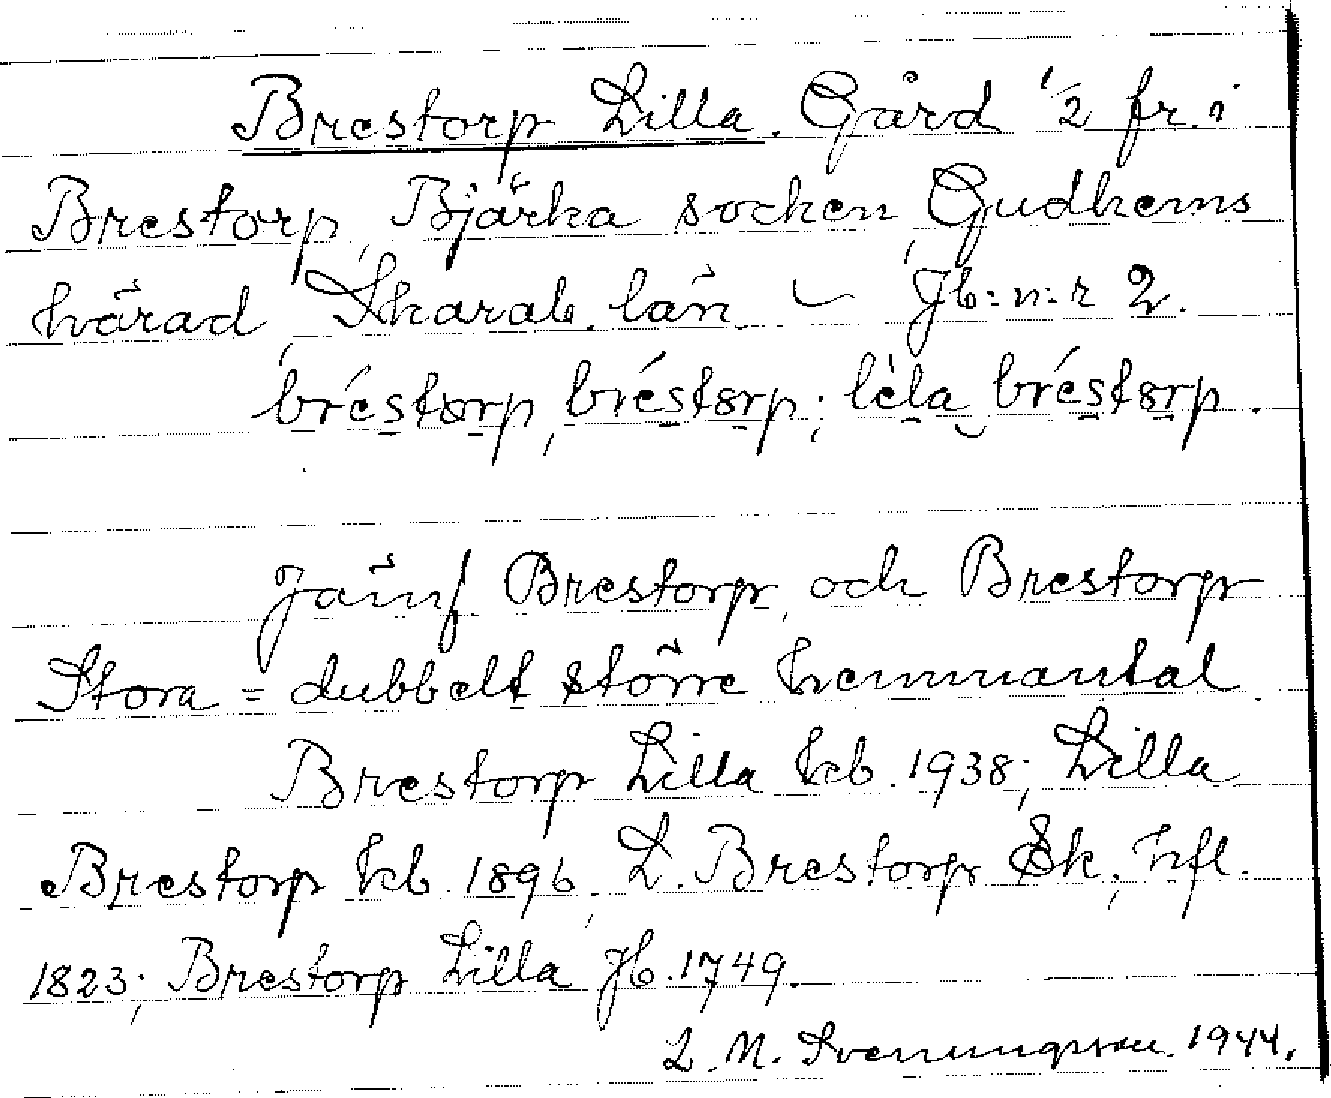 Brestorp Lilla. Gård 1/2 fr. i
Brestorp, Bjärka socken, Gudhems
härad, Skarab. län. – Jb:n:r 2.
bréstorp, bréstorp; lèla bréstorp.
Jämf Brestorp, och Brestorp
Stora = dubbelt större hemmantal.
Brestorp Lilla hb. 1938; Lilla
Brestorp hb. 1896, L. Brestorp Sk; hfl.
1823; Brestorp Lilla Jb. 1749.
L. N. Svenungsson. 1944.